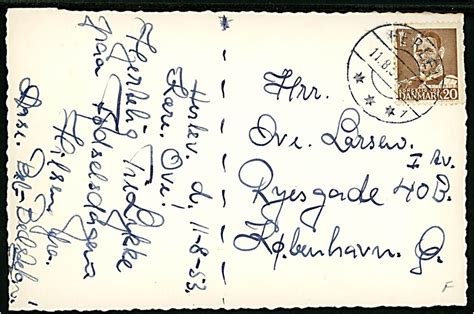 Herlev. d. 11-8-53.
Kære Ove!
Hjertelig Tillykke
paa Fødselsdagen
Hilsen fra.
HERLEV
11.8.5
DANMARK 20
Hrr.
Ove Larsen.
I Tv.
Ryesgade 40B.
København. Ø.
F